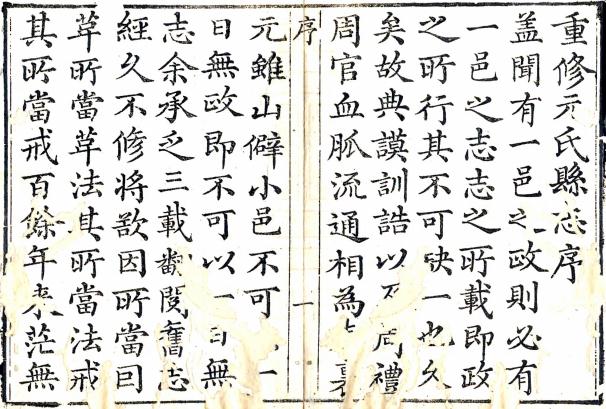 重修元氏縣志序
盖聞有一邑之政則必有
一邑之志志之所載即政
之所行其不可缺一也久
矣故典謨訓誥以及周禮
周官血脈流通相為表裏
序
一
元雖山僻小邑不可一
日無政即不可以一日無
志余承乏三載繙閱舊志
經久不修將欲因所當因
革所當革法其所當法戒
其所當戒百餘年來茫無